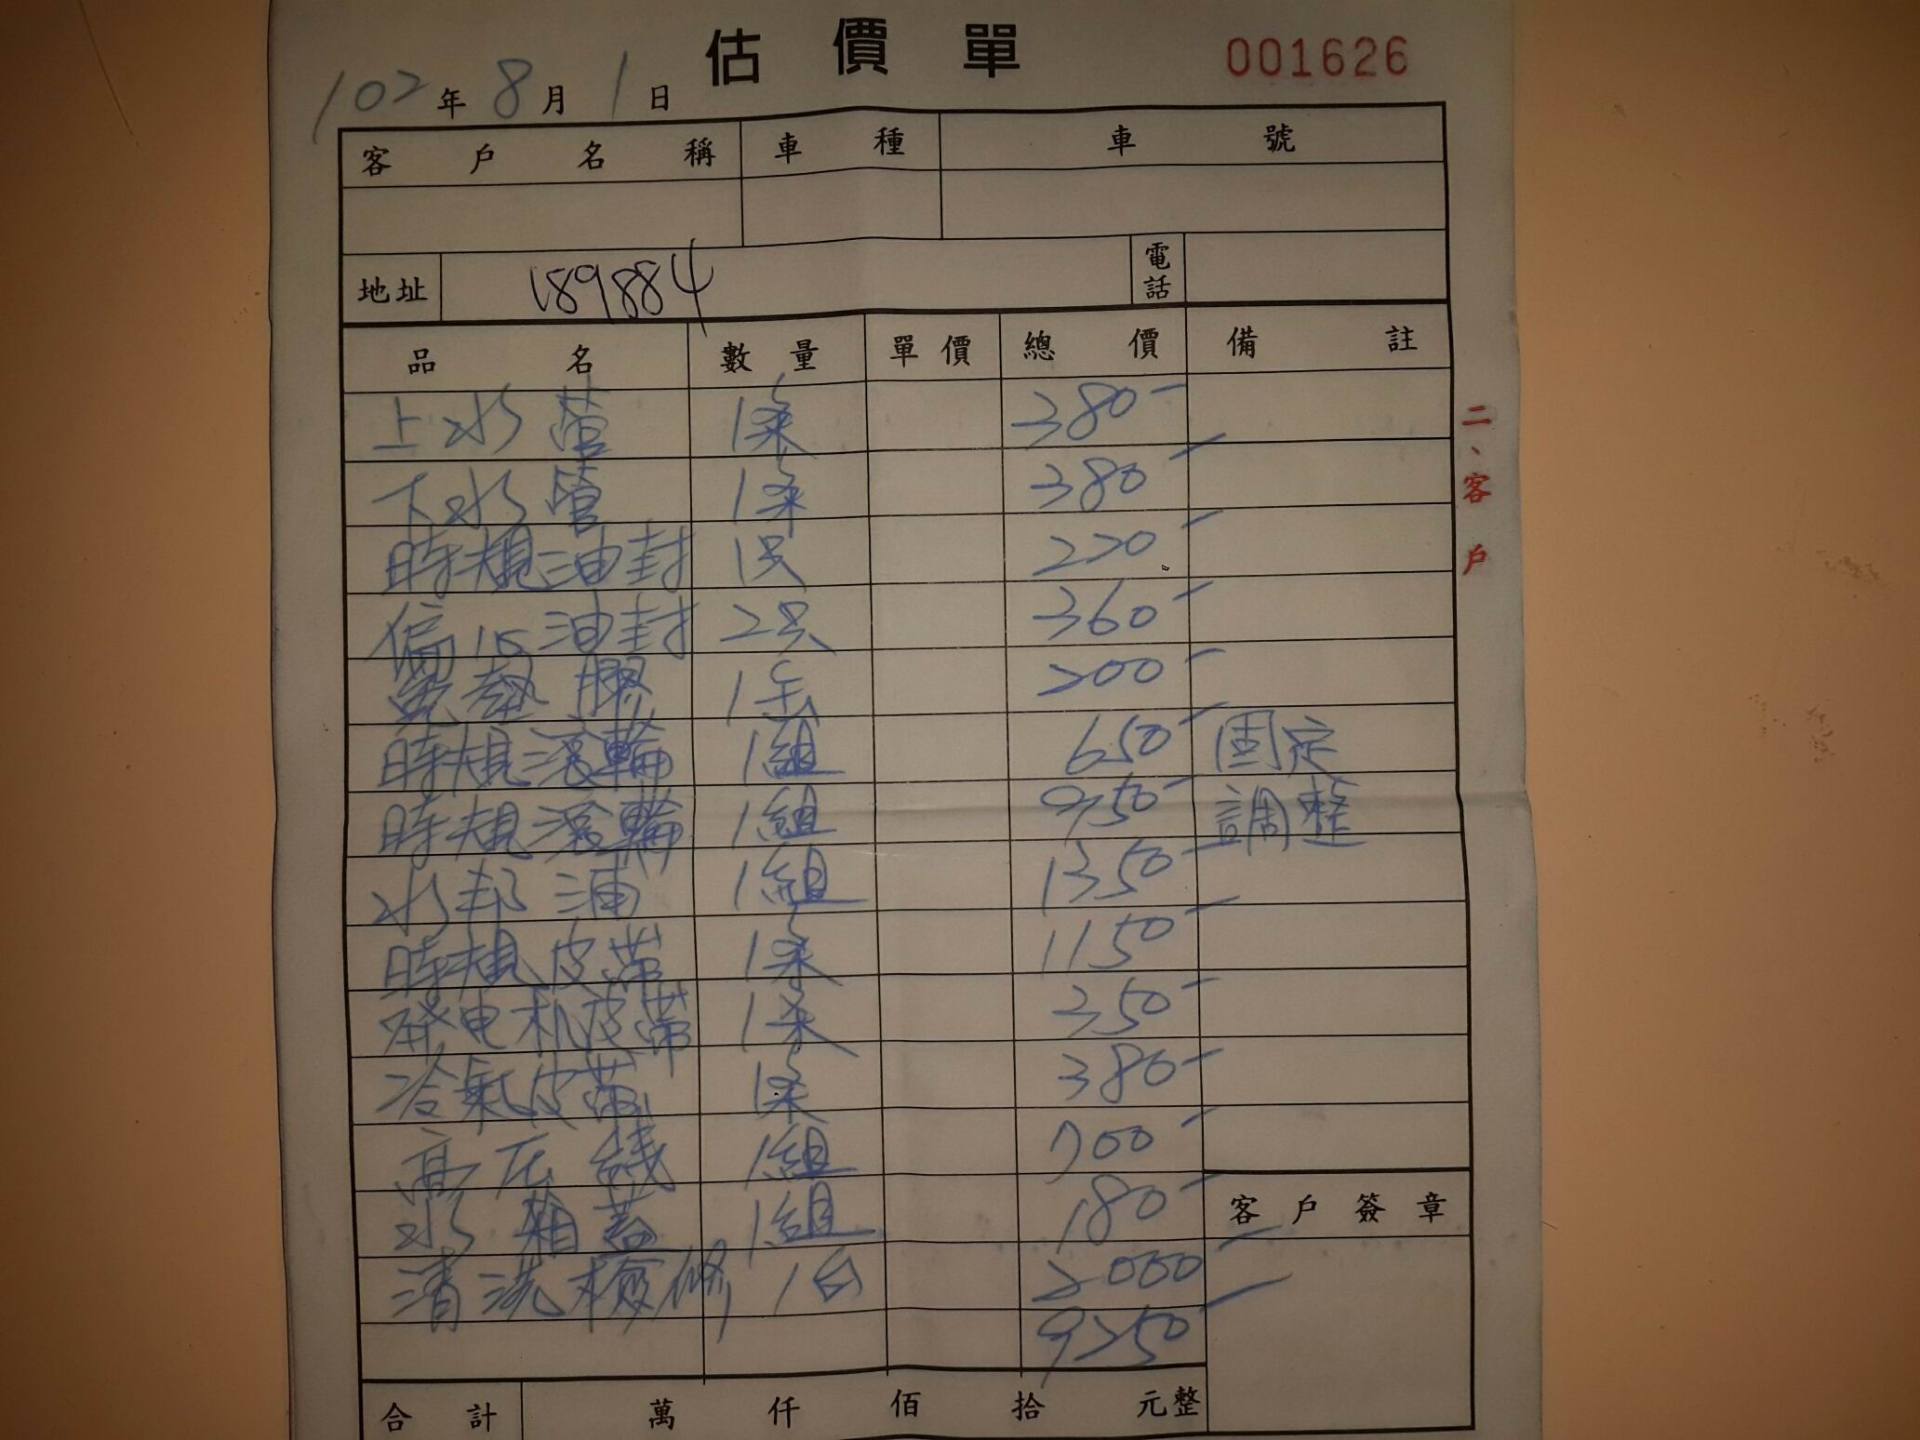 估價單 001626
102年8月1日
客戶名稱 車種 車號
地址 189884 電話
品名 數量 單價 總價 備註
上水管 1条 380-
下水管 1条 380-
時規油封 1只 220-
偏心油封 2只 360-
耐熱膠 1条 200-
時規滾輪 1組 650- 固定
時規滾輪 1組 950- 調整
水邦浦 1組 1350-
時規皮帶 1条 1150-
發电机皮帶 1条 350-
冷氣皮帶 1条 380-
高压線 1組 700-
水箱蓋 1組 180-
客戶簽章
清洗檢修 1台 2000-
9250-
合計 萬 仟 佰 拾 元整
二、客戶